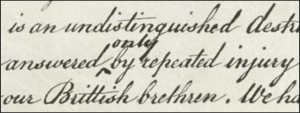 is an undistinguished destr
answered only by repeated injury
our Brittish brethren. We ha